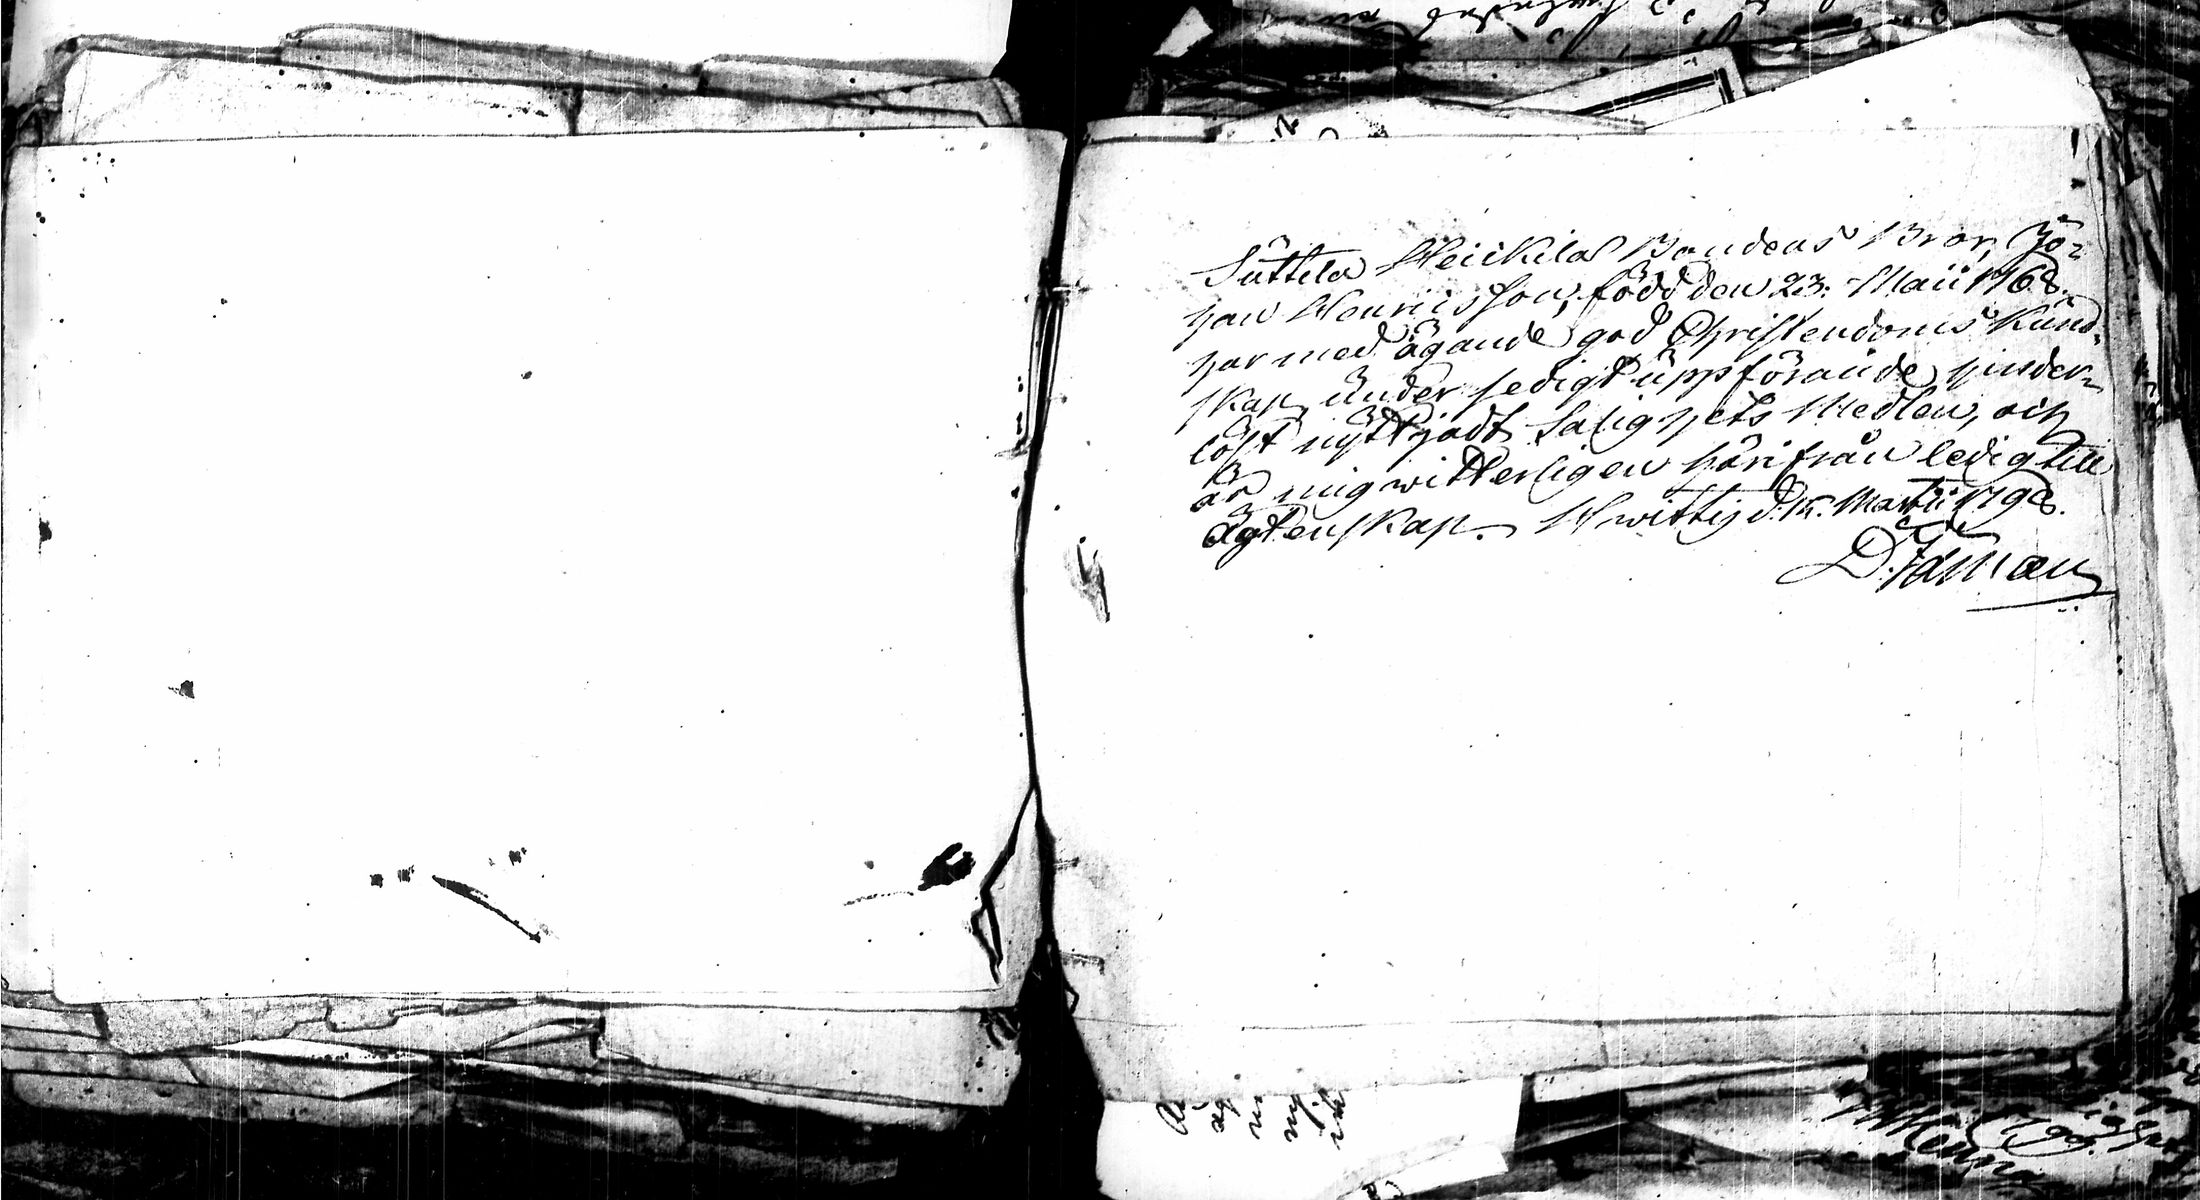 Suttila Heickilä Bondens Bror, Jo-
han Henricsson, född den 23. Maii 1768.
har med ägande god Christendoms Kund-
skap, under sedigt uppförande, hinder-
löst nyttjadt Salighets Medlen, och
är mig witterligen härifrån ledig till
Ägtenskap. Hwittis d. 15. Martii 1798.
D. Idman